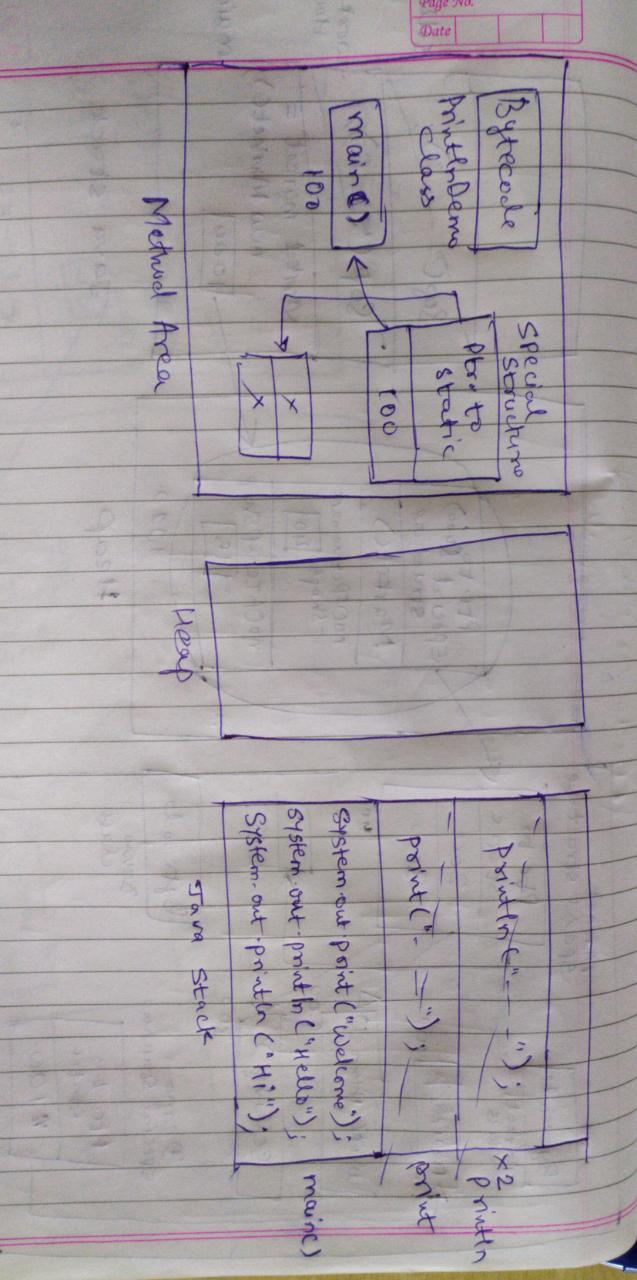 Page No.
Date
Bytecode
PrintlnDemo
Class
main()
100
Special
Structure
Ptr to
static
100
x
x
Method Area
Heap
println("- - -");
x2
println
print("- —");
print
System.out.print("Welcome");
System.out.println("Hello");
System.out.println("Hi");
main()
Java Stack